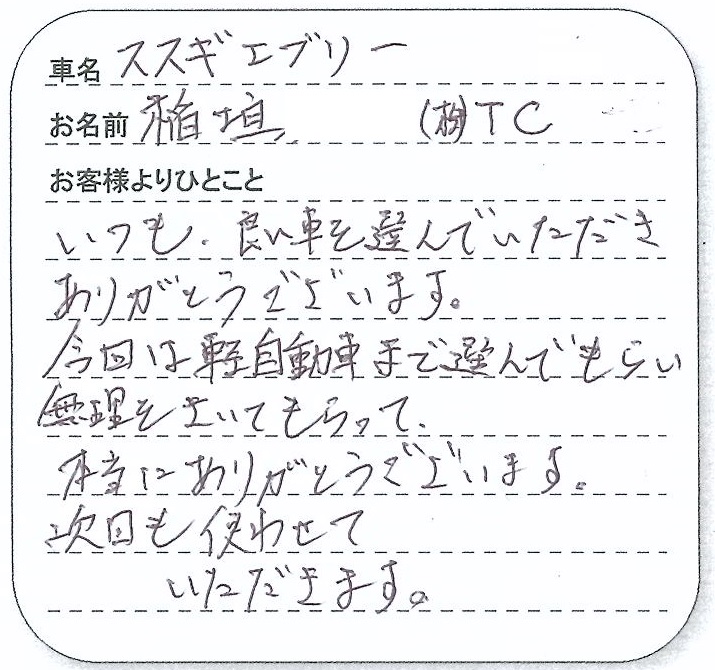 車名 ススギエブリー
お名前 稲垣 (株)TC
お客様よりひとこと
いつも、良い車を選んでいただき
ありがとうございます。
今回は軽自動車まで選んでもらい
無理をきいてもらって、
本当にありがとうございます。
次回も使わせて
いただきます。